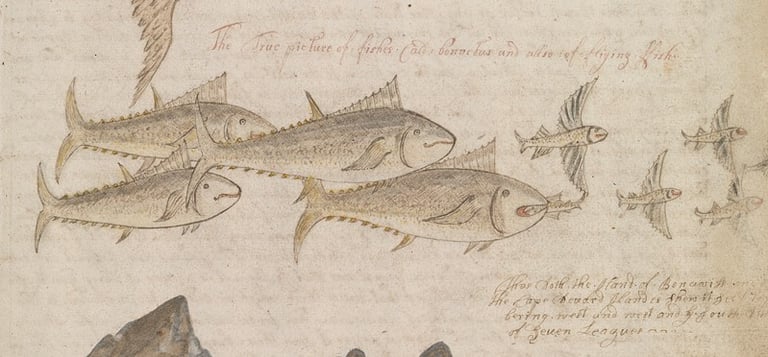 The True picture of fishes Cald bonoctus and also of flying Fish
Thus doth the Iland of Bonavist
the Cape Devard Ilandes shew it self
bering west and west and by South
of Seven Leagues